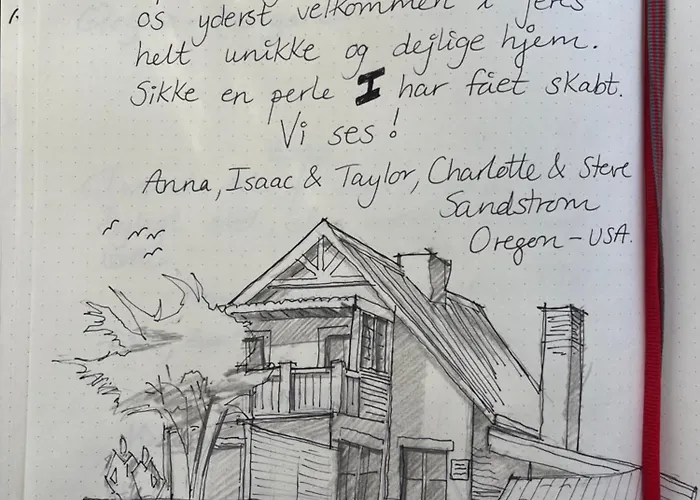 os yderst velkommen i jeres
helt unikke og dejlige hjem.
Sikke en perle I har fået skabt.
Vi ses!
Anna, Isaac & Taylor, Charlotte & Steve
Sandstrom
Oregon - USA.